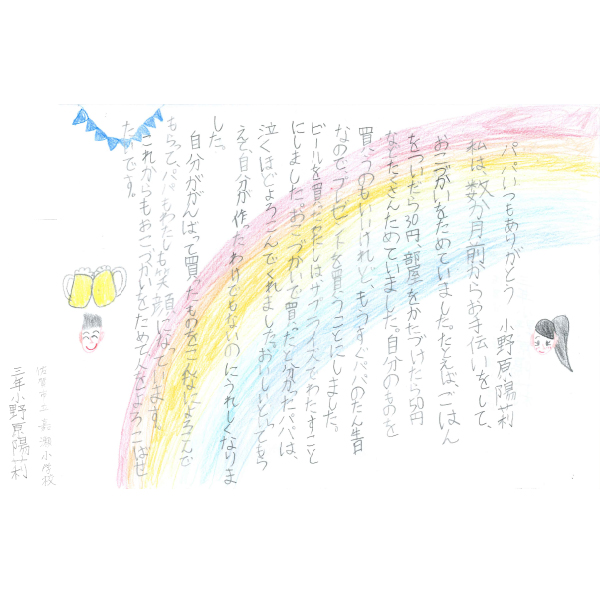 パパいつもありがとう　小野原陽莉
私は、数か月前からお手伝いをして、
おこづかいをためていました。たとえば、ごはん
をついだら30円、部屋をかたづけたら50円
などたくさんためていました。自分のものを
買うのもいいけれど、もうすぐパパのたん生日
なので、プレゼントを買うことにしました。
ビールを買った。わたしはサプライズでわたすこと
にしました。おこづかいで買ったと分かったパパは、
泣くほどよろこんでくれました。おいしいといってもら
えて、自分が作ったわけでもないのにうれしくなりま
した。
自分ががんばって買ったものをこんなによろこんで
もらって、パパもわたしも笑顔になっています。
これからもおこづかいをためて人をよろこばせ
たいです。
佐賀市立嘉瀬小学校
三年小野原陽莉